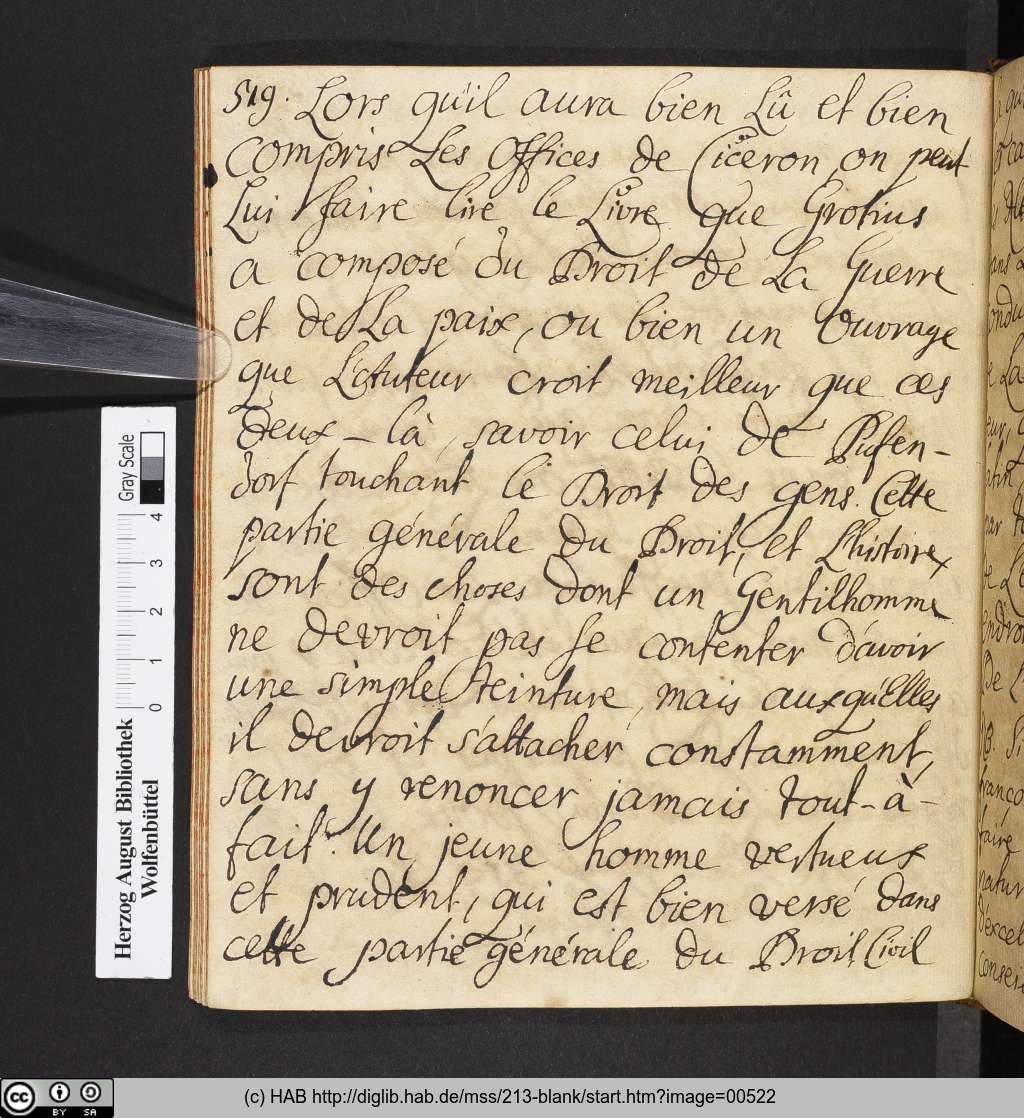 519. Lors qu'il aura bien Lû et bien
compris Les Offices de Ciceron, on peut
Lui faire lire le Livre que Grotius
a composé du Droit de La Guerre
et de La paix, ou bien un Ouvrage
que L'Auteur croit meilleur que ces
deux-là, savoir celui de Pufen-
dorf touchant le Droit des gens. Cette
partie générale du Droit, et L'histoire,
sont des choses dont un Gentilhomme
ne devroit pas se contenter d'avoir
une simple teinture, mais auxqu'Elles
il devroit s'attacher constamment,
sans y renoncer jamais tout-à-
fait. Un jeune homme vertueux
et prudent, qui est bien versé dans
cette partie générale du Droit Civil
Gray Scale
4
3
2
1
0
Herzog August Bibliothek
Wolfenbüttel
cc BY SA
(c) HAB http://diglib.hab.de/mss/213-blank/start.htm?image=00522